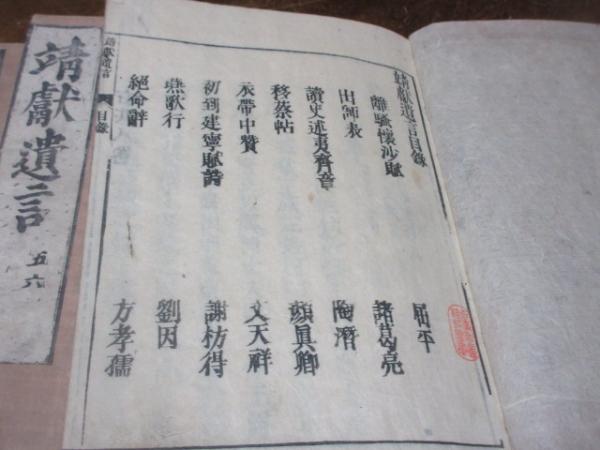 靖獻遺言目錄
離騷懷沙賦 屈平
出師表 諸葛亮
讀史述夷齊章 陶潛
移蔡帖 顏眞卿
衣帶中贊 文天祥
初到建寧賦詩 謝枋得
燕歌行 劉因
絕命辭 方孝孺
靖獻遺言 目錄
靖獻遺言
五六